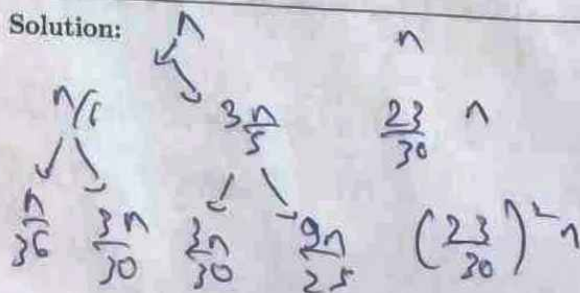 Solution: n n
n/6 3n/5 23/30 n
n/36 3n/30 3n/30 9n/25 (23/30)^2 n